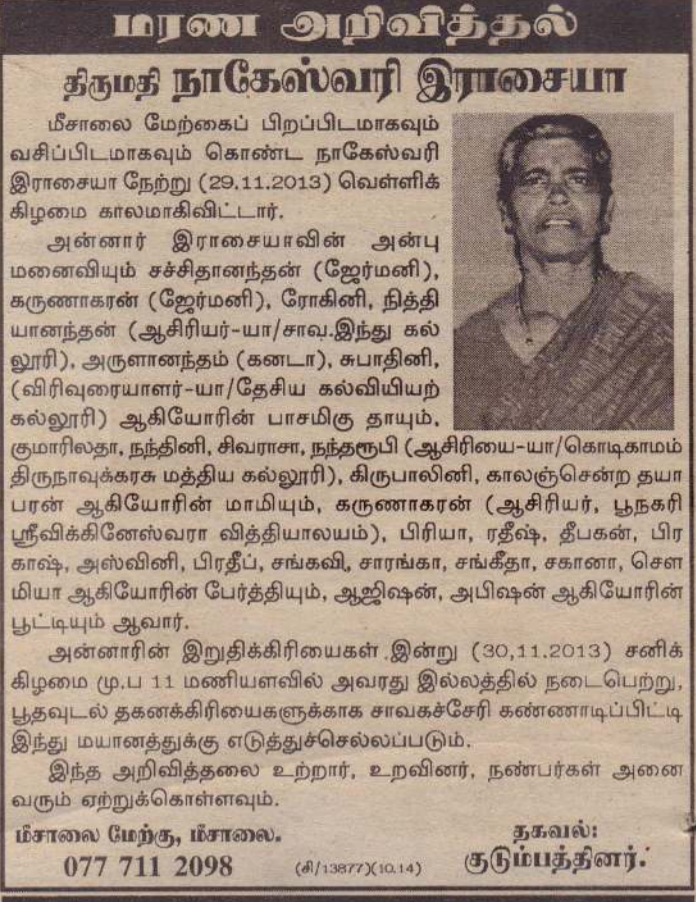 மரண அறிவித்தல்
திருமதி நாகேஸ்வரி இராசையா
மீசாலை மேற்கைப் பிறப்பிடமாகவும்
வசிப்பிடமாகவும் கொண்ட நாகேஸ்வரி
இராசையா நேற்று (29.11.2013) வெள்ளிக்
கிழமை காலமாகிவிட்டார்.
அன்னார் இராசையாவின் அன்பு
மனைவியும் சச்சிதானந்தன் (ஜேர்மனி),
கருணாகரன் (ஜேர்மனி), ரோகினி, நித்தி
யானந்தன் (ஆசிரியர்-யா/சாவ.இந்து கல்
லூரி), அருளானந்தம் (கனடா), சுபாதினி,
(விரிவுரையாளர்-யா/தேசிய கல்வியியற்
கல்லூரி) ஆகியோரின் பாசமிகு தாயும்,
குமாரிலதா, நந்தினி, சிவராசா, நந்தரூபி (ஆசிரியை-யா/கொடிகாமம்
திருநாவுக்கரசு மத்திய கல்லூரி), கிருபாலினி, காலஞ்சென்ற தயா
பரன் ஆகியோரின் மாமியும், கருணாகரன் (ஆசிரியர், பூநகரி
ஸ்ரீவிக்கினேஸ்வரா வித்தியாலயம்), பிரியா, ரதீஷ், தீபகன், பிர
காஷ், அஸ்வினி, பிரதீப், சங்கவி, சாரங்கா, சங்கீதா, சகானா, சௌ
மியா ஆகியோரின் பேர்த்தியும், ஆஜிஷன், அபிஷன் ஆகியோரின்
பூட்டியும் ஆவார்.
அன்னாரின் இறுதிக்கிரியைகள் இன்று (30,11.2013) சனிக்
கிழமை மு.ப 11 மணியளவில் அவரது இல்லத்தில் நடைபெற்று,
பூதவுடல் தகனக்கிரியைகளுக்காக சாவகச்சேரி கண்ணாடிப்பிட்டி
இந்து மயானத்துக்கு எடுத்துச்செல்லப்படும்.
இந்த அறிவித்தலை உற்றார், உறவினர், நண்பர்கள் அனை
வரும் ஏற்றுக்கொள்ளவும்.
மீசாலை மேற்கு, மீசாலை.
077 711 2098
(சி/13877)(10.14)
தகவல்:
குடும்பத்தினர்.